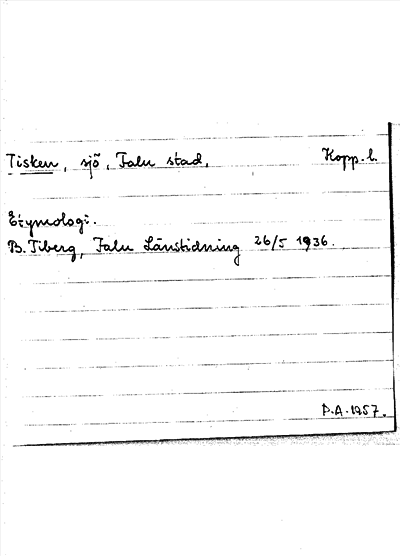 Tisken, sjö, Falu stad, Kopp. l.
Etymologi.
B. Tiberg, Falu Länstidning 26/5 1936.
P.A. 1957.